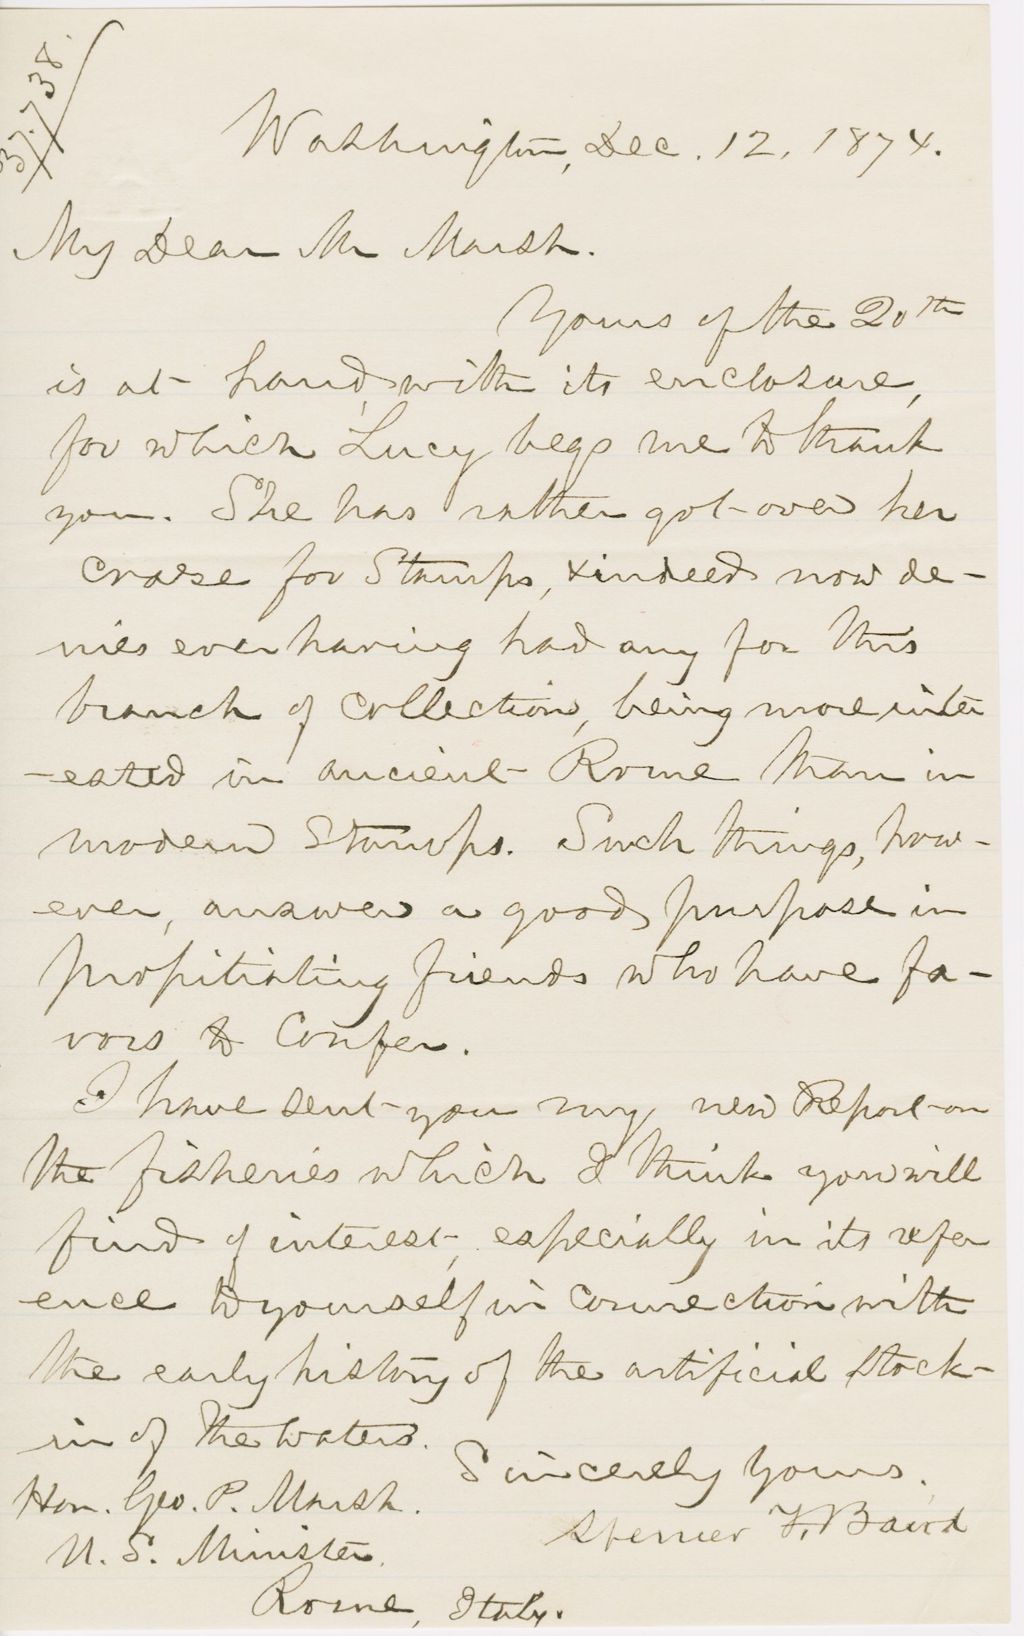 37.738.
Washington, Dec. 12, 1874.
My Dear Mr Marsh.
Yours of the 20th
is at hand, with its enclosure,
for which Lucy begs me to thank
you. She has rather got over her
craze for Stamps, & indeed now de-
nies ever having had any for this
branch of collection, being more inter
-ested in ancient Rome than in
modern Stamps. Such things, how-
ever, answer a good purpose in
propitiating friends who have fa-
vors to Confer.
I have sent you my new Report on
the fisheries which I think you will
find of interest, especially in its refer
ence to yourself in connection with
the early history of the artificial stock-
in of the waters.
Sincerely Yours,
Hon. Geo. P. Marsh.
Spencer F. Baird
U. S. Minister.
Rome, Italy.